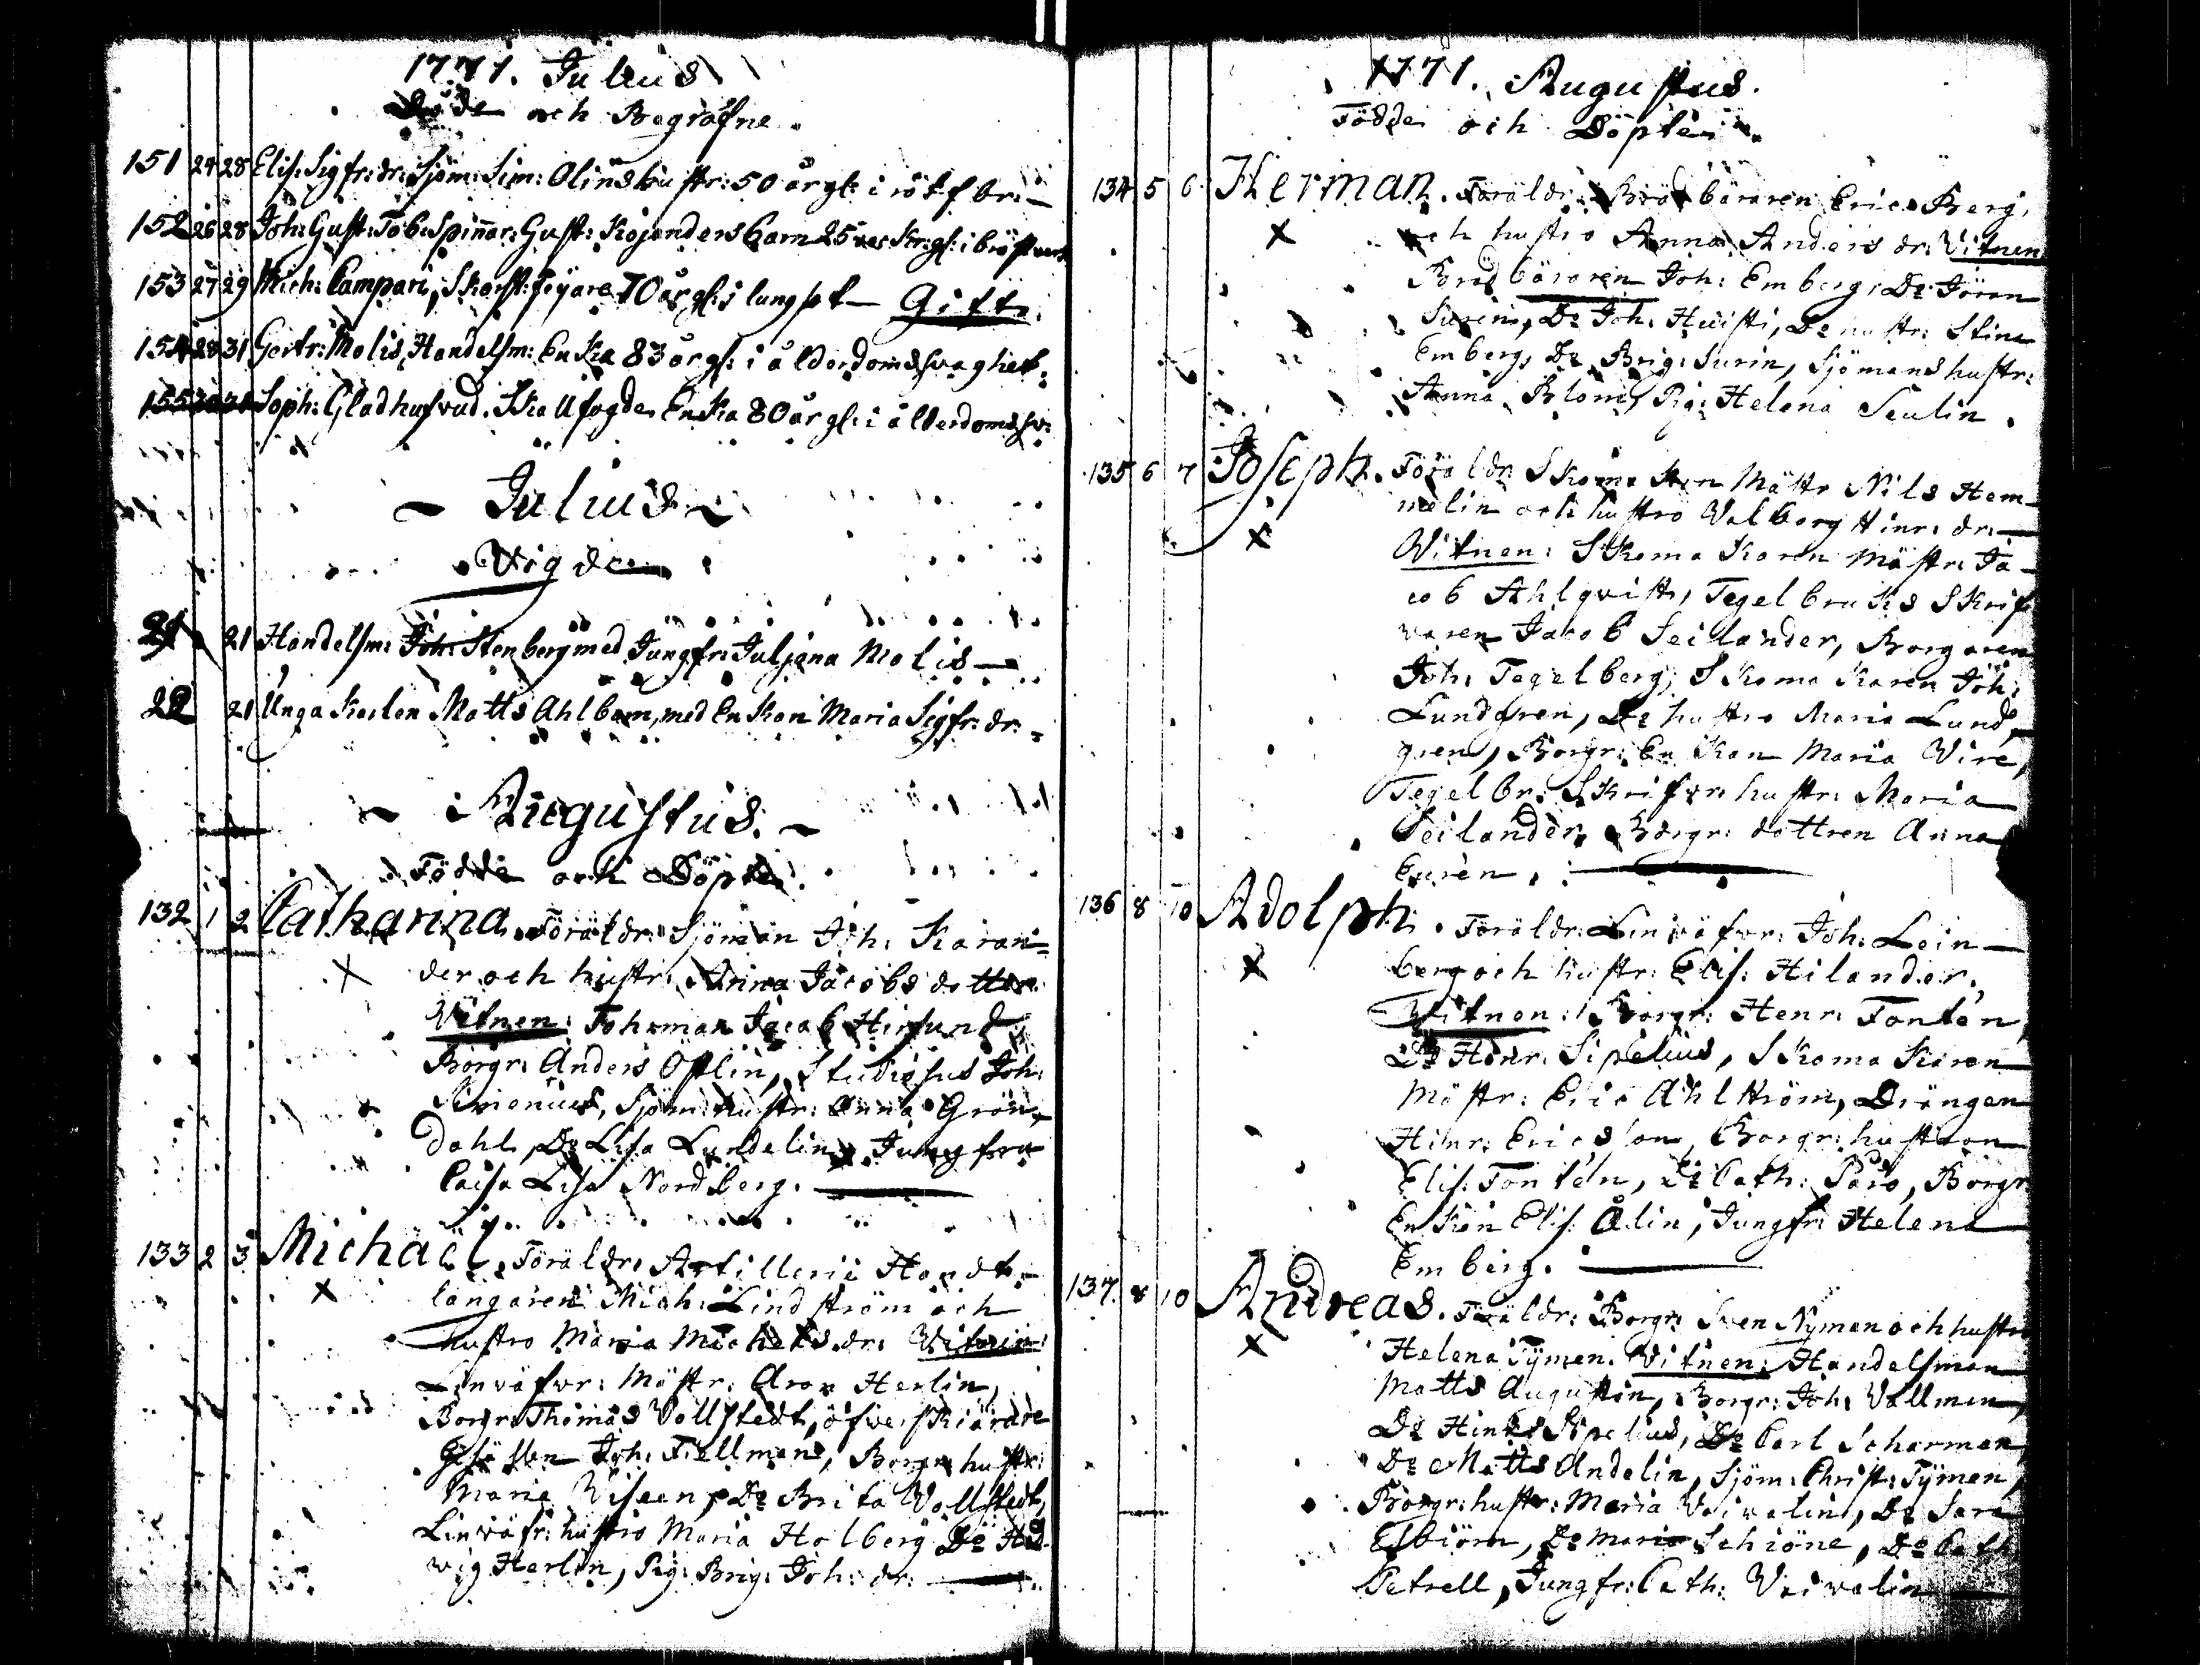 1771. Julius
Döde och Begrafne.
151 24 28 Elis: Sigfr: dr: Sjöm: Sim: Olins hustr: 50 år gl: i rötfbr: –
152 26 28 Joh: Gust: Tob: Spiñar: Gust: Kojanders barn 25 vec kr: gl: i bröstverk
153 27 29 Mich: Campari, Skorst: fejare 70 år gl: i lungsot – Gift.
154 28 31 Gertr: Molis, Handelsm: Enka 83 år gl: i ålderdomssvaghet.
155 30 31 Soph: Gladhufvud. Skallfogde Enka 80 år gl: i ålderdomssv:
– Julius –
Vigde
21 21 Handelsm: Joh: Stenberg med Jungfr: Juljana Molis –
22 21 Unga Karlen Matts Ahlbom, med Enkan Maria Sigfr: dr:
– Augustus. –
Födde och Döpte.
132 1 2 Catharina. Föräldr: Sjöman Joh: Karan=
x der och hustr: Anna Jacobs dotter
Vitnen: Fohrman Jacob Hirfund
Borgr: Anders Östlin, Studiosus Joh:
Simonius, Sjöm: hustr: Anna Grön=
dahl, Do Lisa Lundelin, Jungfru
Caisa Lisa Nordberg.
133 2 3 Michaël. Föräldr: Artillerie Handt=
x langaren Mich: Lindström och
hustro Maria Michels dr: Vitnen:
Linväfvr: Mästr: Aron Herlin,
Borgr: Thomas Vollstedt, öfverskiärare
Gesällen Joh: Fiellman, Borgr: hustr:
Maria Viseen, Do Brita Vollstedt,
Linväfr: hustro Maria Holberg Do Hed=
vig Herlin, Pig: Brig: Joh: dr:
1771. Augustus.
Födde och Döpte.
134 5 6 Herman. Föräldr: Brödbäraren Eric Berg,
x och hustro Anna Anders dr: Vitnen
Brödbäraren Joh: Emberg, Do Jöran
Surin, Do Joh: Huisti, Do hustr: Stina
Emberg, Do Brig: Surin, Sjömans hustr:
Anna Blom, Pig: Helena Seulin.
135 6 7 Joseph. Föräldr: Skomakaren Mästr Nils Hem=
melin och hustro Valborg Hinr: dr: –
x Witnen: Skomakaren Mästr: Ja=
cob Ahlqvist, Tegelbruks Skrif
varen Jacob Seilander, Borgaren
Joh: Tegelberg, Skomakaren Joh:
Lundgren, Do hustro Maria Lund=
gren, Borgr: Enkan Maria Wire,
Tegelbr: Skrifvr: hustr: Maria
Seilander, Borgr: dottren Anna
Euren.
136 8 10 Adolph. Föräldr: Linväfvr: Joh: Lein=
x berg och hustr: Elis: Hilander.
Witnen: Borgr: Henr: Fontén,
Do Henr: Sipelius, Skomakaren
Mästr: Eric Ahlström, Drängen
Hinr: Ericsson, Borgr: hustron
Elis: Fontén, Do Cath: Paro, Borgr
Enkan Elis: Ålin, Jungfr: Helena
Emberg.
137 8 10 Andreas. Föräldr: Borgr: Sven Nyman och hustro
x Helena Tÿmen. Vitnen: Handelsman
Matts Augustin, Borgr: Joh: Vallman,
Do Hinr: Sipelius, Do Carl Scharman
Do Matts Andelin, Sjöm: Christ: Tÿmen,
Borgr: hustr: Maria Vaivalin, Do Sara
Elbiörn, Do Maria Schiöne, Do Cath
Petrell, Jungfr: Cath: Vaivalin